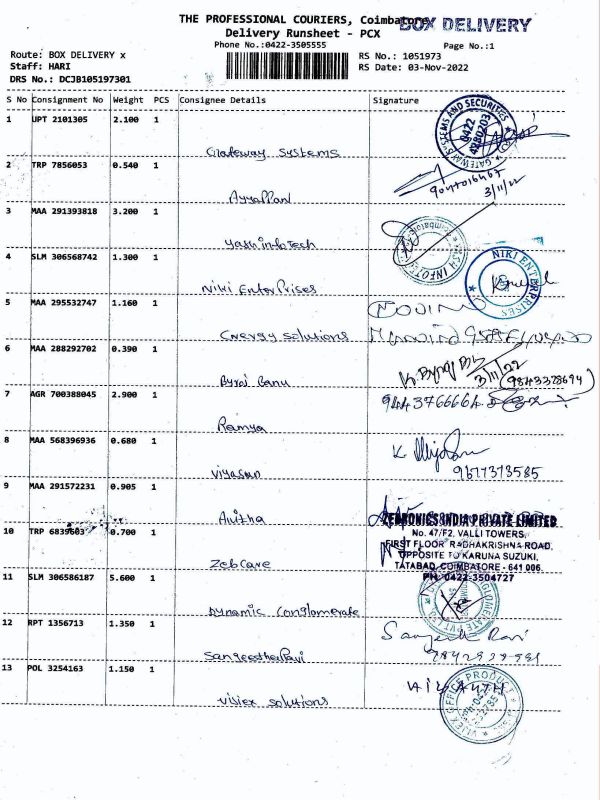 THE PROFESSIONAL COURIERS, Coimbatore
BOX DELIVERY
Delivery Runsheet - PCX
Phone No.:0422-3505555
Page No.:1
Route: BOX DELIVERY x
Staff: HARI
DRS No.: DCJB105197301
RS No.: 1051973
RS Date: 03-Nov-2022
S No Consignment No Weight PCS Consignee Details Signature
1 UPT 2101305 2.100 1
GATEWAY SYSTEMS AND SECURITIES
0422
4280203
Gateway Systems
2 TRP 7856053 0.540 1
3/11/22
Ayyappan
3 MAA 291393818 3.200 1
Yash infotech
4 SLM 306568742 1.300 1
NIKI ENTERPRISES
Niki Enterprises
5 MAA 295532747 1.160 1
Cnergy solutions
6 MAA 288292702 0.390 1
3/11/22
(9843328694)
Byraj Banu
7 AGR 700388045 2.900 1
9443766664
Ramya
8 MAA 568396936 0.680 1
K
9677373585
9 MAA 291572231 0.905 1
Anitha
ZEBRONICS INDIA PRIVATE LIMITED
No. 47/F2, VALLI TOWERS,
FIRST FLOOR, RADHAKRISHNA ROAD,
OPPOSITE TO KARUNA SUZUKI,
TATABAD, COIMBATORE - 641 006.
PH: 0422-3504727
10 TRP 6839603 0.700 1
Zebcare
11 SLM 306586187 5.600 1
Dynamic Conglomerate
12 RPT 1356713 1.350 1
Sangeetha Ravi
13 POL 3254163 1.150 1
solutions